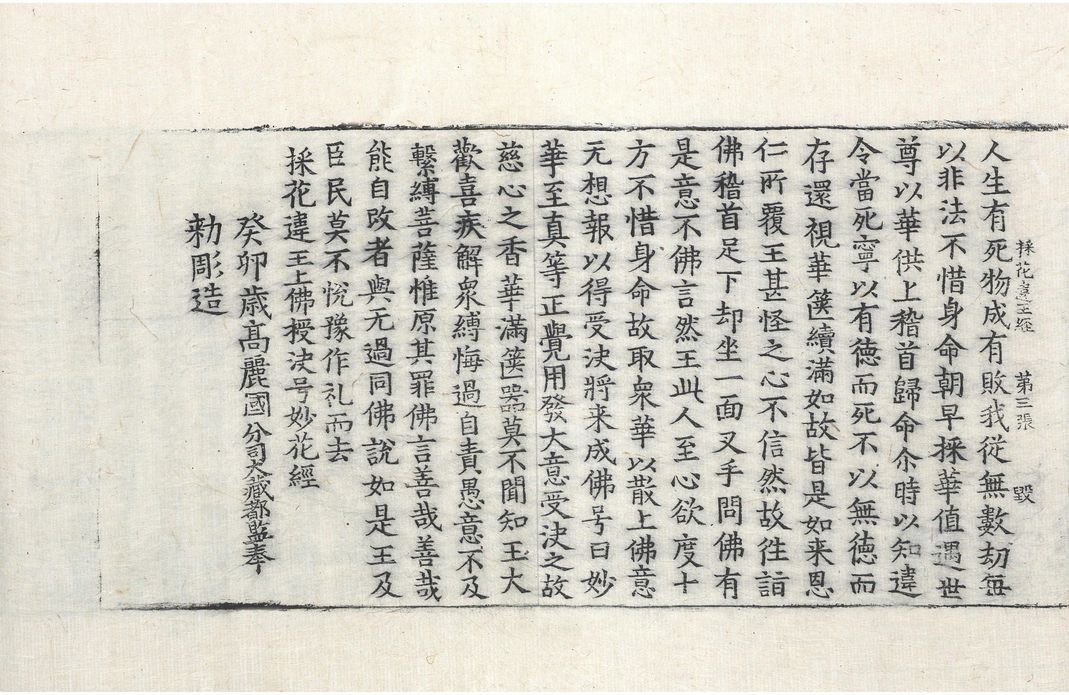 採花違王經 第三張 毀
人生有死物成有敗我從無數劫每
以非法不惜身命朝早採華值遇世
尊以華供上稽首歸命尒時以知違
令當死寧以有徳而死不以無徳而
存還視華篋續滿如故皆是如来恩
仁所覆王甚怪之心不信然故徃詣
佛稽首足下却坐一面叉手問佛有
是意不佛言然王此人至心欲度十
方不惜身命故取衆華以散上佛意
无想報以得受决將来成佛号曰妙
華至真等正覺用發大意受决之故
慈心之香華滿篋器莫不聞知王大
歡喜疾解衆縛悔過自責愚意不及
繫縛菩薩惟原其罪佛言善哉善哉
能自改者與无過同佛說如是王及
臣民莫不悅豫作礼而去
採花違王上佛授决号妙花經
癸卯歳高麗國分司大藏都監奉
勅彫造